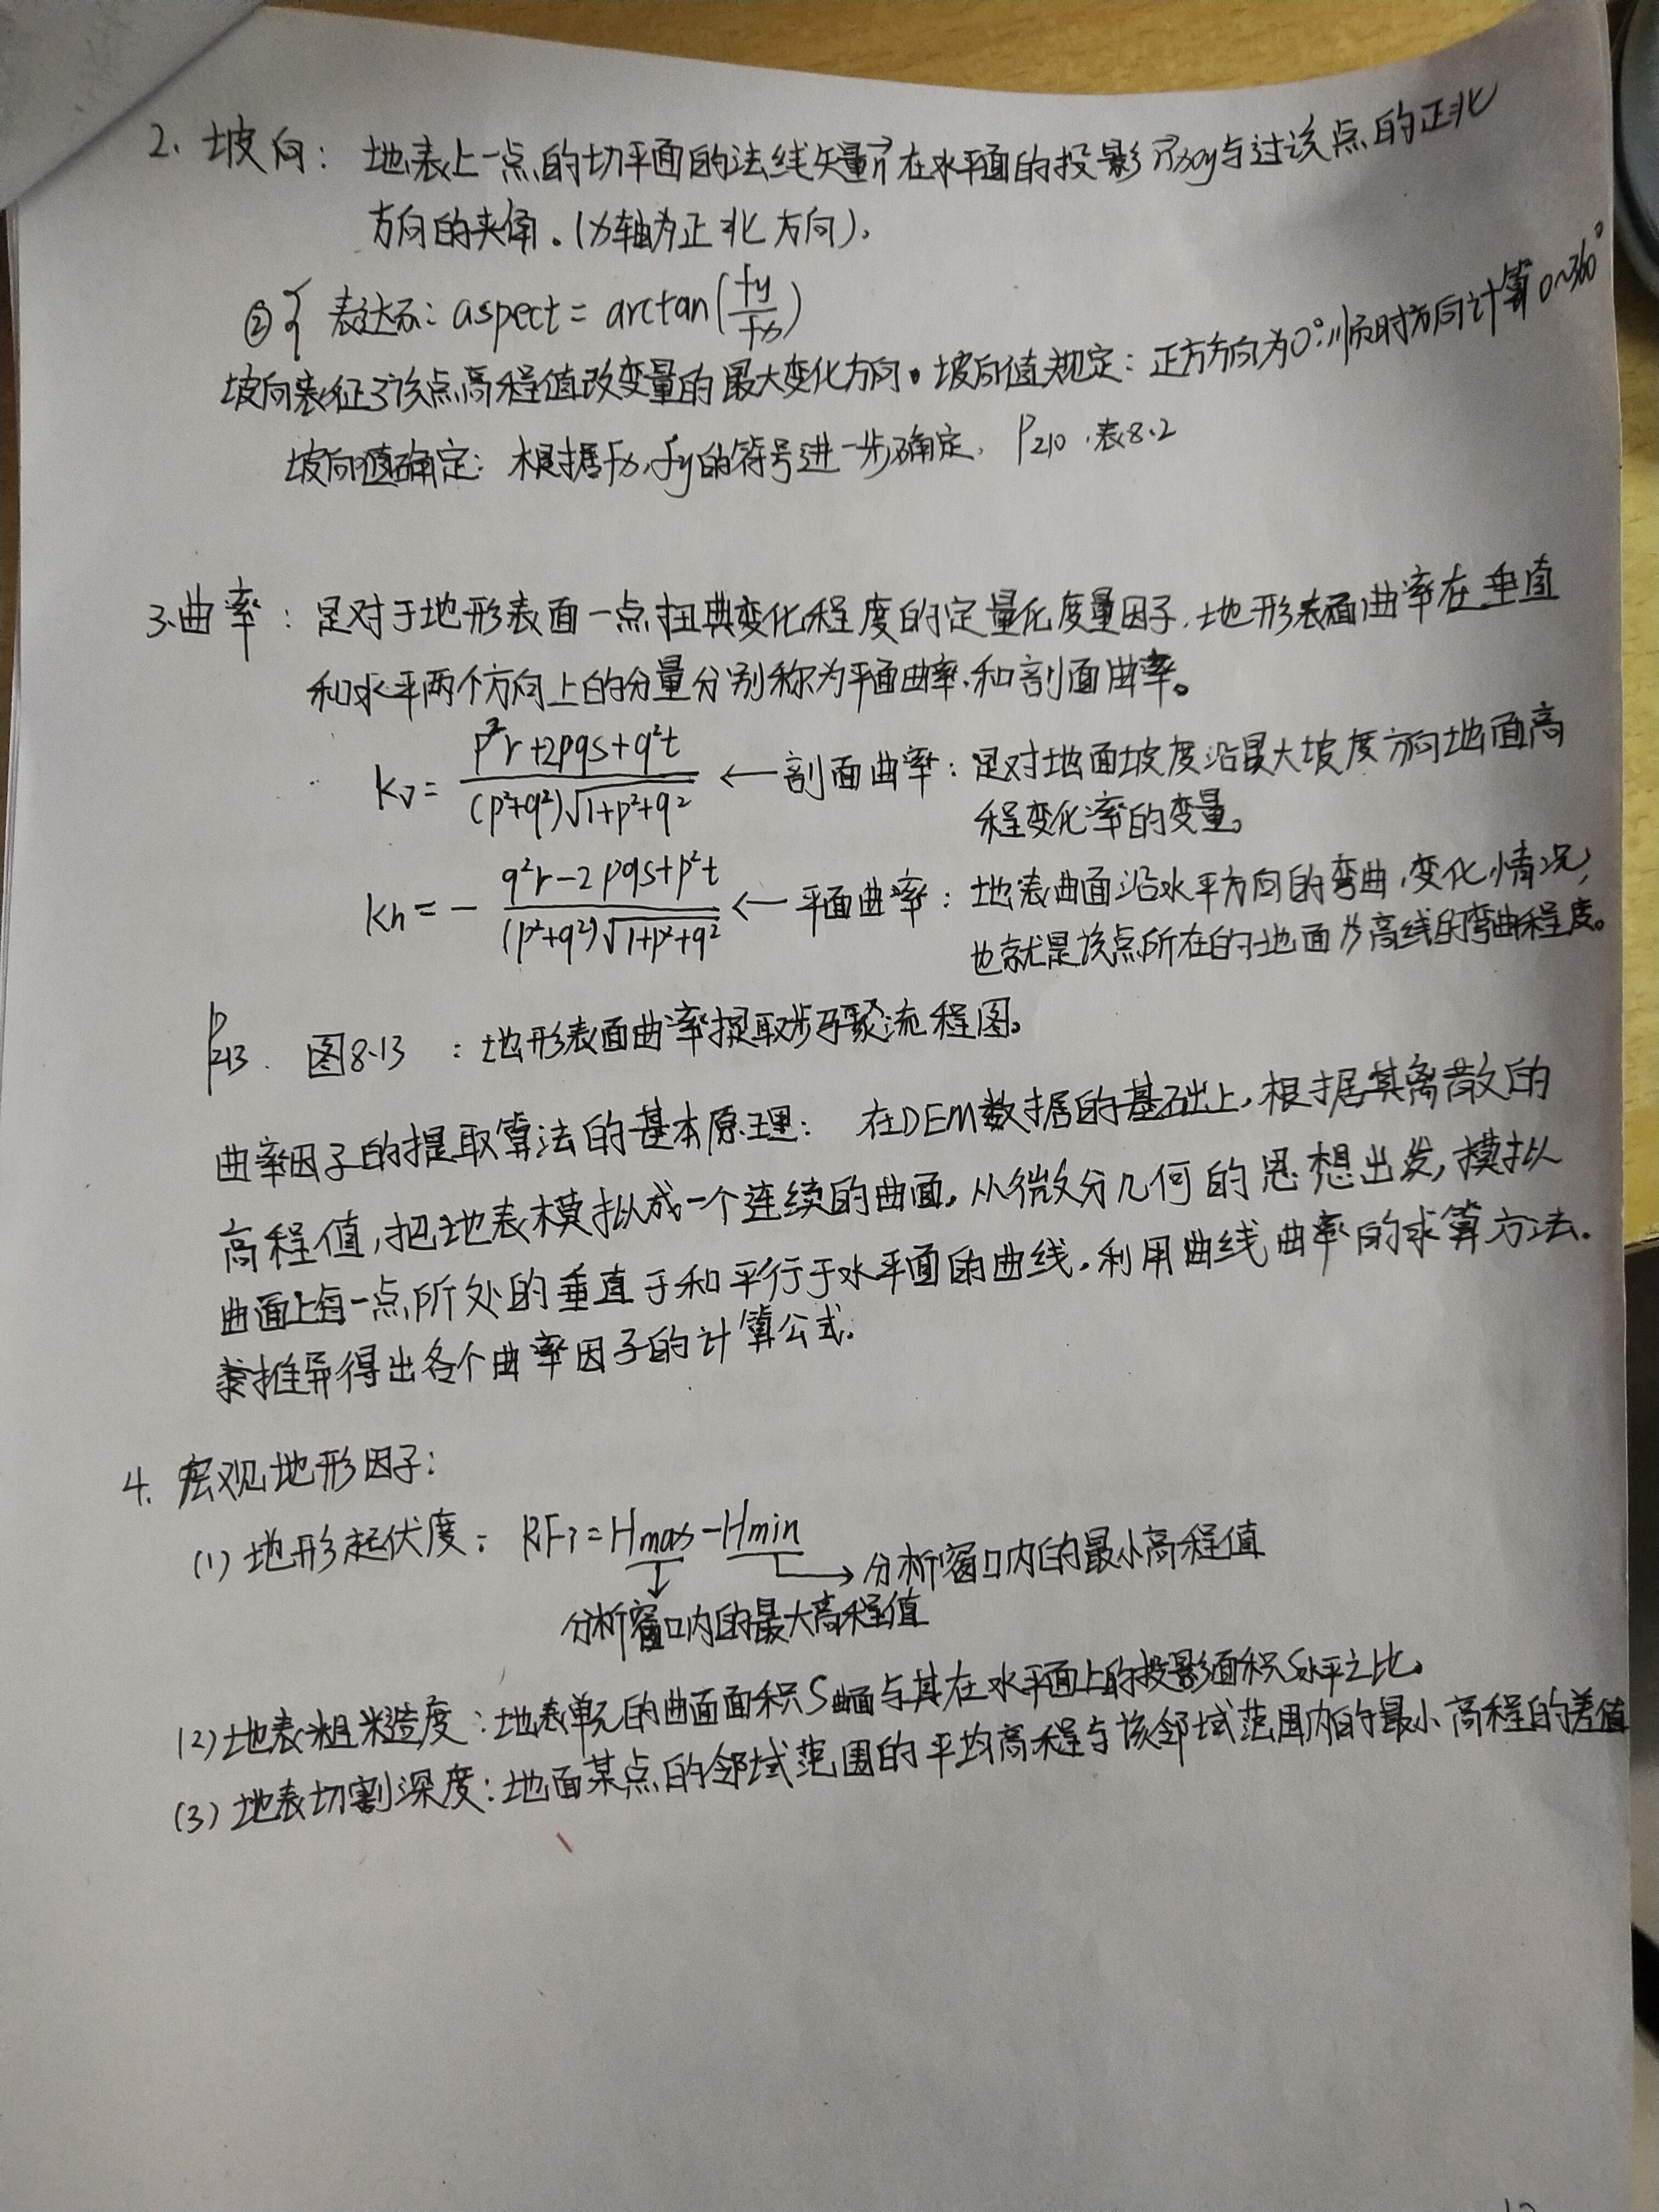 2. 坡向：地表上一点的切平面的法线矢量n⃗在水平面的投影n⃗xoy与过该点的正北
方向的夹角。(x轴为正北方向)。
② { 表达式：aspect = arctan(fy/fx)
坡向表征了该点高程值改变量的最大变化方向。坡向值规定：正方方向为0°,顺时方向计算0~360°
坡向值确定：根据fx,fy的符号进一步确定. P210 .表8.2
3.曲率：是对于地形表面一点扭典变化程度的定量化度量因子.地形表面曲率在垂直
和水平两个方向上的分量分别称为平面曲率.和剖面曲率。
Kv = (p²r+2pqs+q²t)/((p²+q²)√(1+p²+q²)) ← 剖面曲率：是对地面坡度沿最大坡度方向地面高
程变化率的变量。
Kh = - (q²r-2pqs+p²t)/((p²+q²)√(1+p²+q²)) ← 平面曲率：地表曲面沿水平方向的弯曲,变化情况,
也就是该点所在的地面等高线的弯曲程度。
P213. 图8.13 ：地形表面曲率提取步骤流程图。
曲率因子的提取算法的基本原理：在DEM数据的基础上,根据其离散的
高程值,把地表模拟成一个连续的曲面。从微分几何的思想出发,模拟
曲面上每一点所处的垂直于和平行于水平面的曲线.利用曲线曲率的求算方法.
推导得出各个曲率因子的计算公式.
4. 宏观地形因子：
(1) 地形起伏度：RFi = Hmax - Hmin
→ 分析窗口内的最小高程值
分析窗口内的最大高程值
(2) 地表粗糙度：地表单元的曲面面积S曲面与其在水平面上的投影面积S水平之比。
(3) 地表切割深度：地面某点的邻域范围的平均高程与该邻域范围内的最小高程的差值